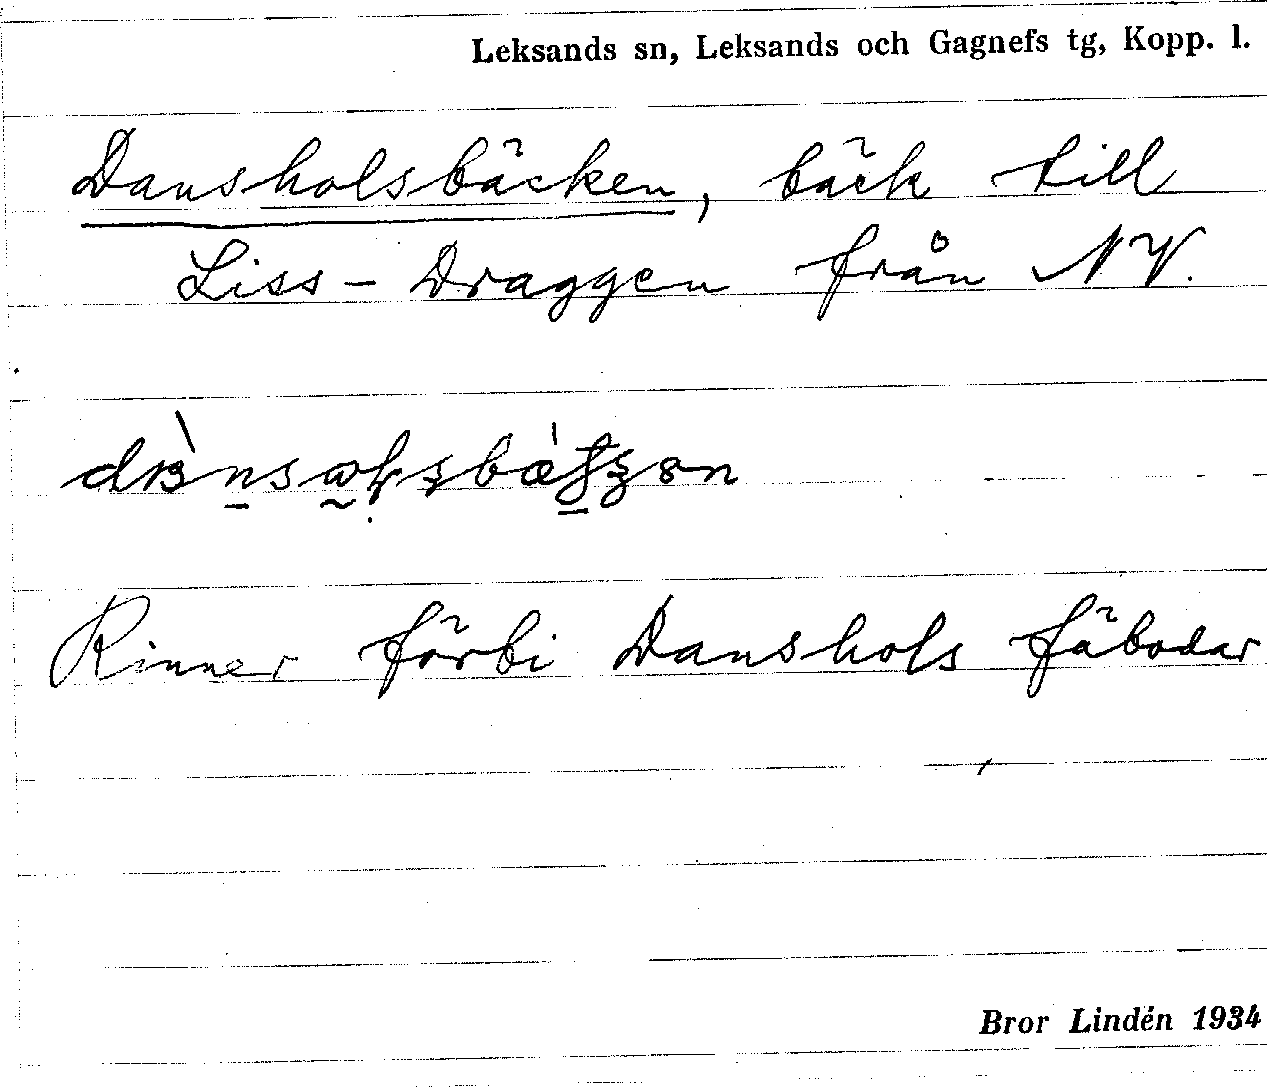 Leksands sn, Leksands och Gagnefs tg, Kopp. l.
Dansholsbäcken, bäck till
Liss-Draggen från NV.
Rinner förbi Danshols fäbodar
Bror Lindén 1934